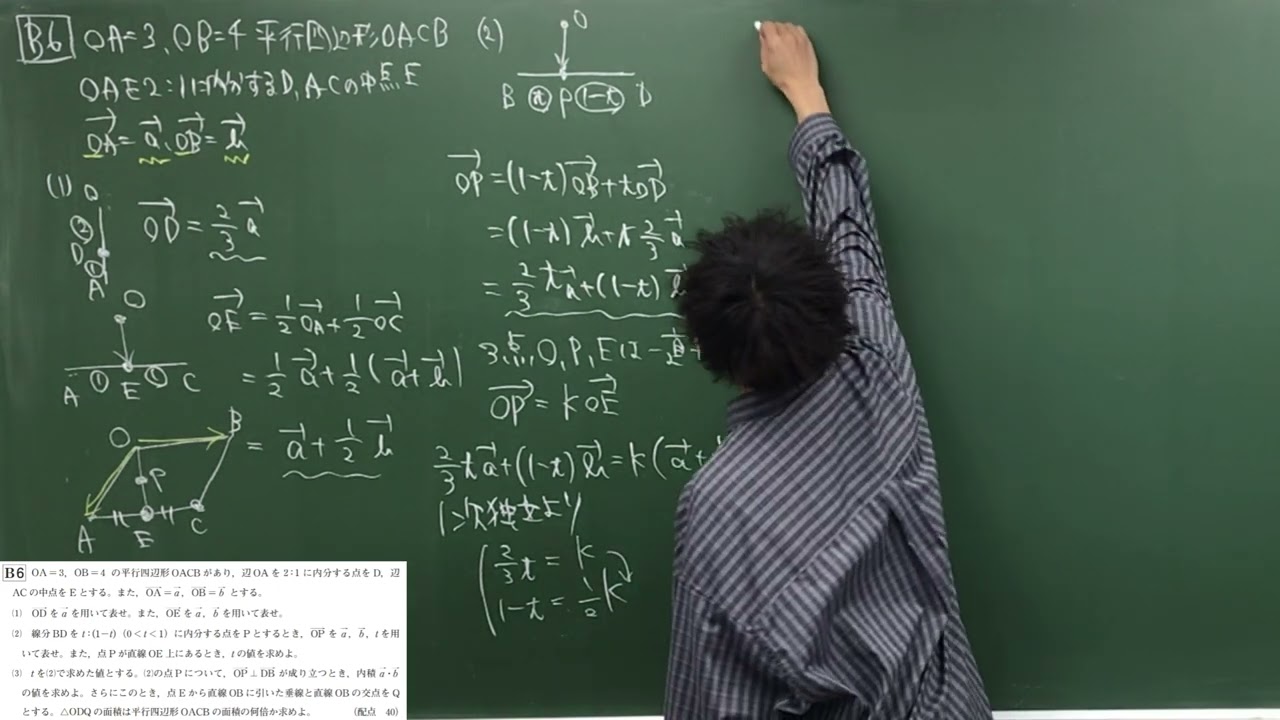 B6 OA=3、OB=4 平行四辺形OACB
OAを2:1に内分するD、ACの中点E
→OA=→a、→OB=→b
(1)
O
②
D
①
A
→OD=2/3→a
O
A ① E ① C
→OE=1/2→OA+1/2→OC
=1/2→a+1/2(→a+→b)
=→a+1/2→b
O B
P
A E C
(2)
O
B t P 1-t D
→OP=(1-t)→OB+t→OD
=(1-t)→b+t2/3→a
=2/3t→a+(1-t)→b
3点O,P,Eは一直
→OP=k→OE
2/3t→a+(1-t)→b=k(→a+
1次独立より
2/3t=k
1-t=1/2k
B6 OA=3, OB=4 の平行四辺形OACBがあり、辺OAを2:1に内分する点をD、辺
ACの中点をEとする。また、→OA=→a, →OB=→b とする。
(1) →ODを→aを用いて表せ。また、→OEを→a, →bを用いて表せ。
(2) 線分BDを t:(1-t) (0<t<1) に内分する点をPとするとき、→OPを→a, →b, tを用
いて表せ。また、点Pが直線OE上にあるとき、tの値を求めよ。
(3) tを(2)で求めた値とする。(2)の点Pについて、→OP⊥→DB が成り立つとき、内積→a・→b
の値を求めよ。さらにこのとき、点Eから直線OBに引いた垂線と直線OBの交点をQ
とする。△ODQの面積は平行四辺形OACBの面積の何倍か求めよ。 (配点 40)